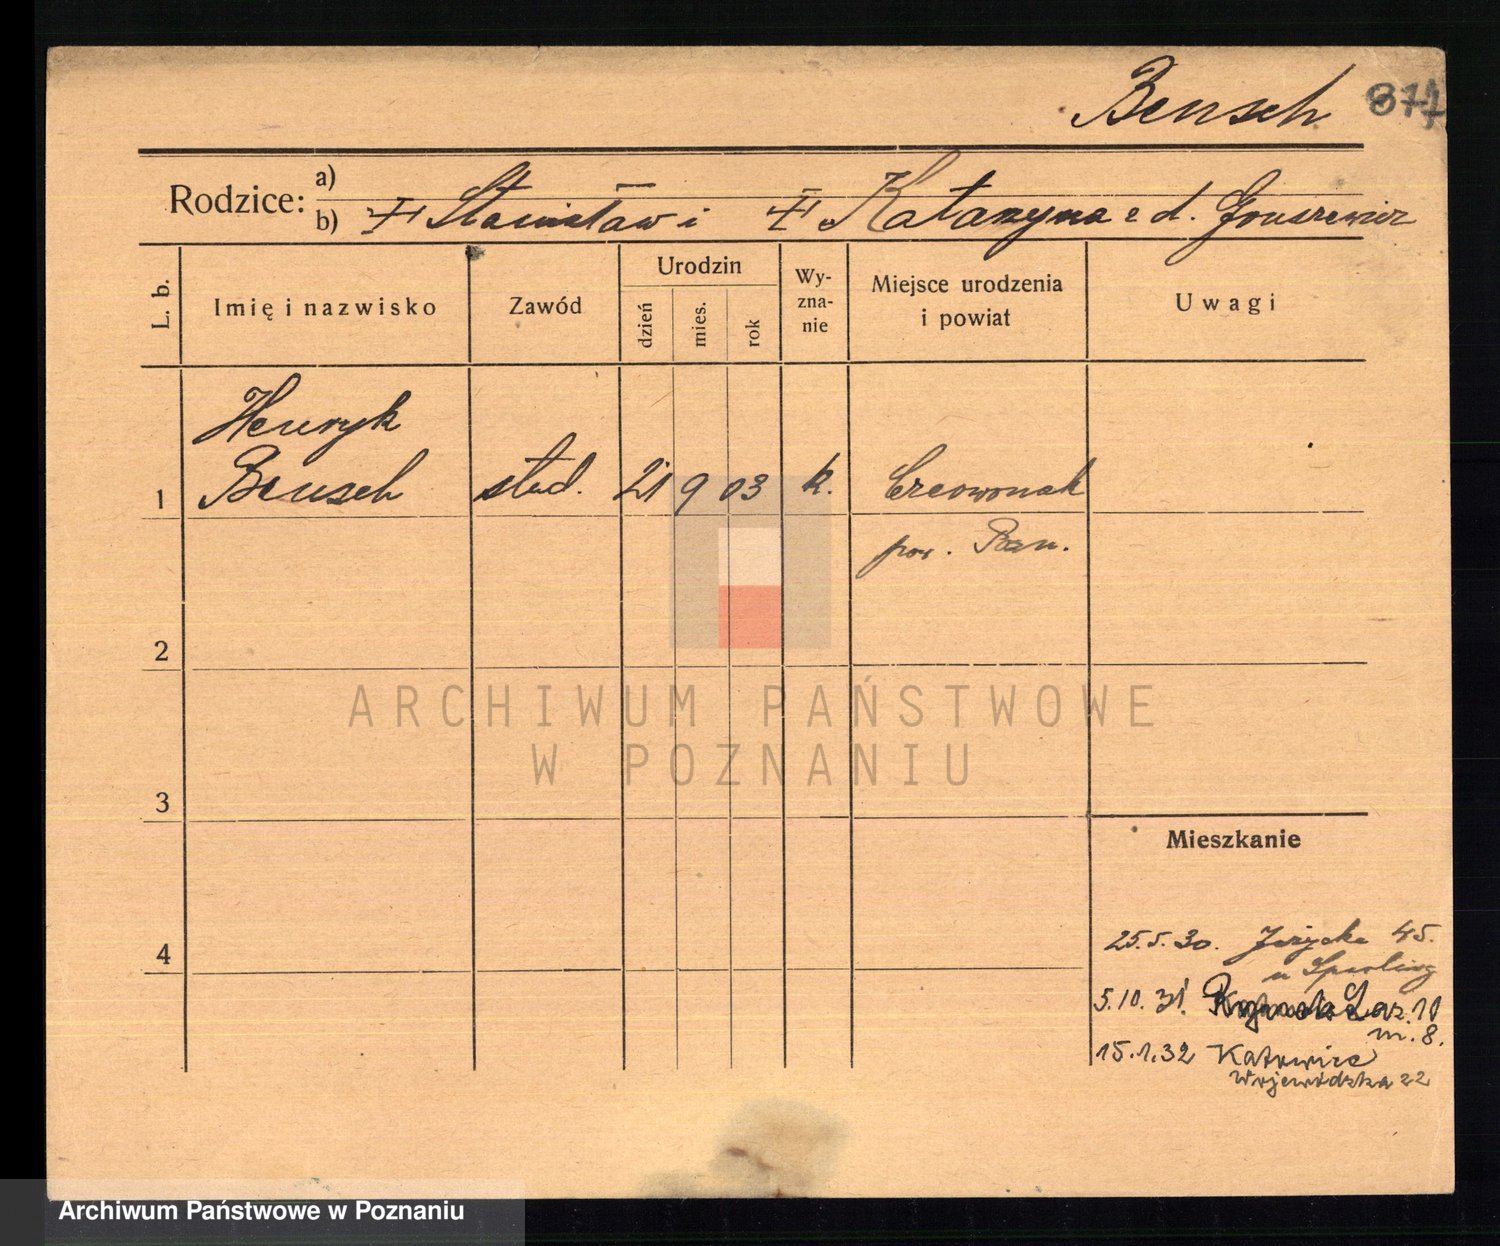 Bensch
Rodzice: a)
b) Stanisław i Katarzyna z d. Gruszewicz
L. b.
Imię i nazwisko
Zawód
Urodzin
dzień
mies.
rok
Wy-
zna-
nie
Miejsce urodzenia
i powiat
Uwagi
Henryk
1 Bensch stud. 21 9 03 k. Czerwonak
pow. Pozn.
2
ARCHIWUM PAŃSTWOWE
W POZNANIU
3
Mieszkanie
4
25.5.30. Jeżycka 45.
u Sperling
5.10.31. Łaz. 11
m. 8.
15.1.32 Katowice
Wojewódzka 22
Archiwum Państwowe w Poznaniu